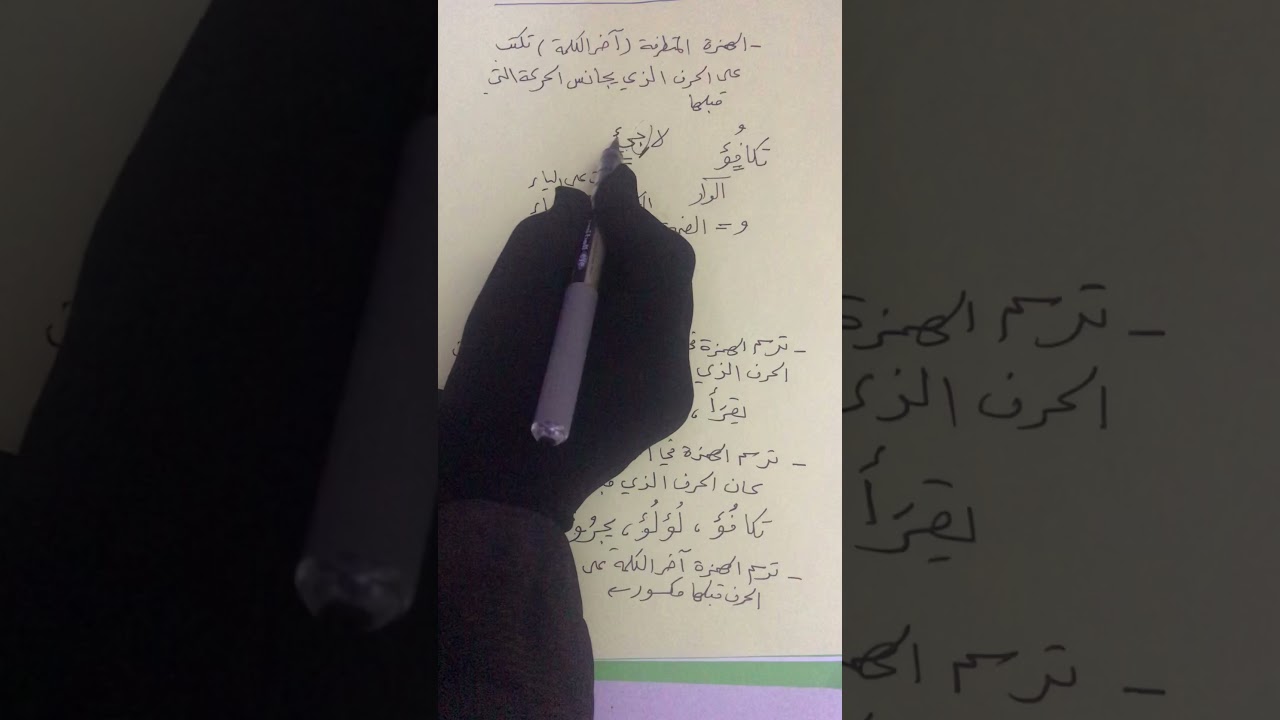 - الهمزة المتطرفة (آخر الكلمة) تكتب
على الحرف الذي يجانس الحركة التي
قبلها
تكافُؤ لاجئ
الواو على الياء
و = الضمة
- ترسم الهمزة
الحرف الذي
يقرَأ ،
- ترسم الهمزة في
كان الحرف الذي
تكافُؤ ، لُؤلُؤ ، يجرُؤ
- ترسم الهمزة آخر الكلمة على
الحرف قبلها مكسور